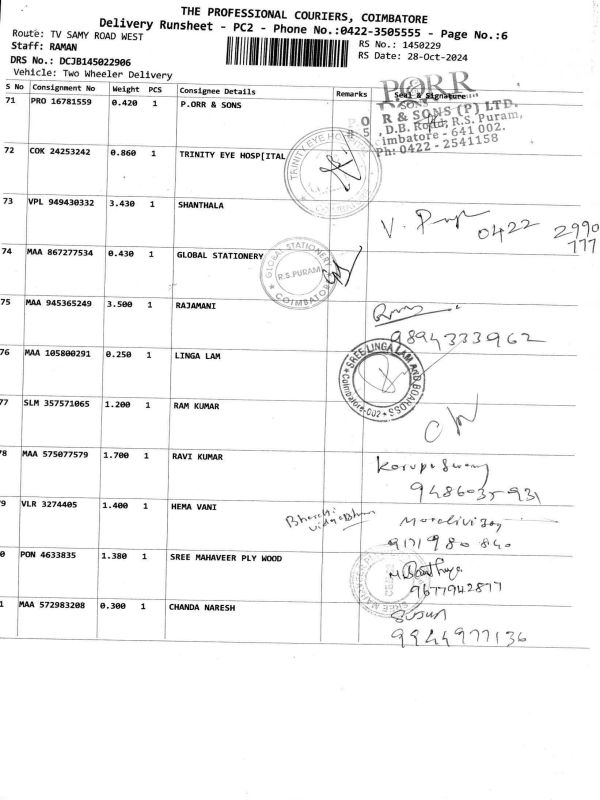 THE PROFESSIONAL COURIERS, COIMBATORE
Delivery Runsheet - PC2 - Phone No.:0422-3505555 - Page No.:6
Route: TV SAMY ROAD WEST
RS No.: 1450229
Staff: RAMAN
RS Date: 28-Oct-2024
DRS No.: DCJB145022906
Vehicle: Two Wheeler Delivery
S No Consignment No Weight PCS Consignee Details Remarks Seal & Signature
71 PRO 16781559 0.420 1 P.ORR & SONS
PORR
& SONS
R & SONS (P) LTD.
, D.B. Road, R.S. Puram,
imbatore - 641 002.
Ph: 0422 - 2541158
72 COK 24253242 0.860 1 TRINITY EYE HOSP[ITAL
TRINITY EYE
73 VPL 949430332 3.430 1 SHANTHALA
0422 2990
777
74 MAA 867277534 0.430 1 GLOBAL STATIONERY
GLOBAL STATIONERY
R.S.PURAM
COIMBATORE
75 MAA 945365249 3.500 1 RAJAMANI
9894333962
76 MAA 105800291 0.250 1 LINGA LAM
SREE LINGA LAM AND BOARDSS
Coimbatore-002
77 SLM 357571065 1.200 1 RAM KUMAR
78 MAA 575077579 1.700 1 RAVI KUMAR
9486035931
79 VLR 3274405 1.400 1 HEMA VANI
Bharathi
9171980840
0 PON 4633835 1.380 1 SREE MAHAVEER PLY WOOD
9677942877
1 MAA 572983208 0.300 1 CHANDA NARESH
Susun
9944977136